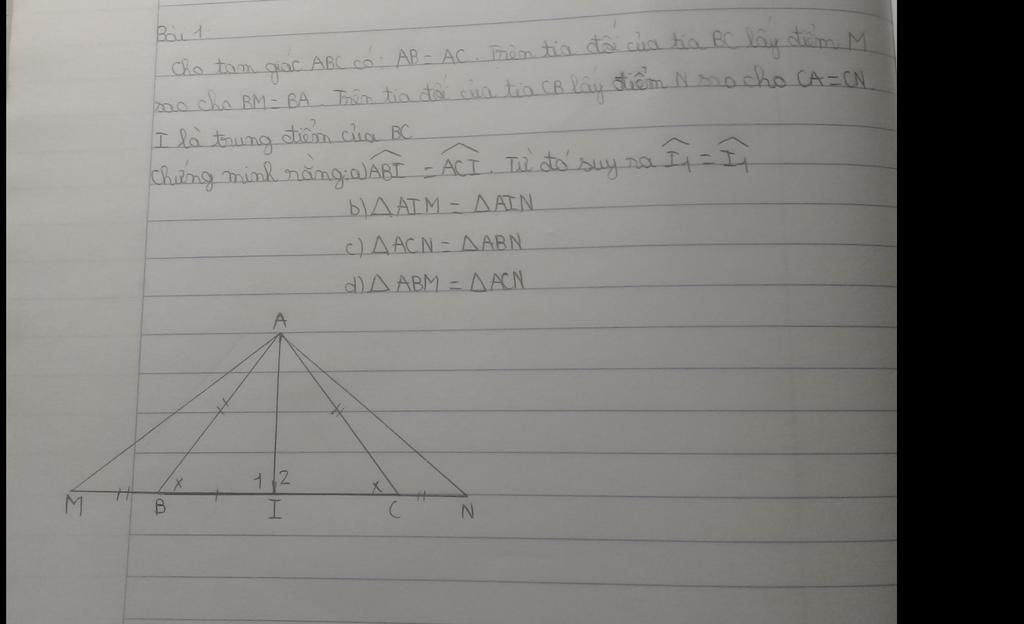 Bài 1
Cho tam giác ABC có: AB = AC. Trên tia đối của tia BC lấy điểm M
sao cho BM = BA. Trên tia đối của tia CB lấy điểm N sao cho CA = CN
I là trung điểm của BC
Chứng minh rằng: a) ABI = ACI. Từ đó suy ra I₁ = I₁
b) △AIM = △AIN
c) △ACN = △ABN
d) △ABM = △ACN
A
x 1 2 x
M B I C N